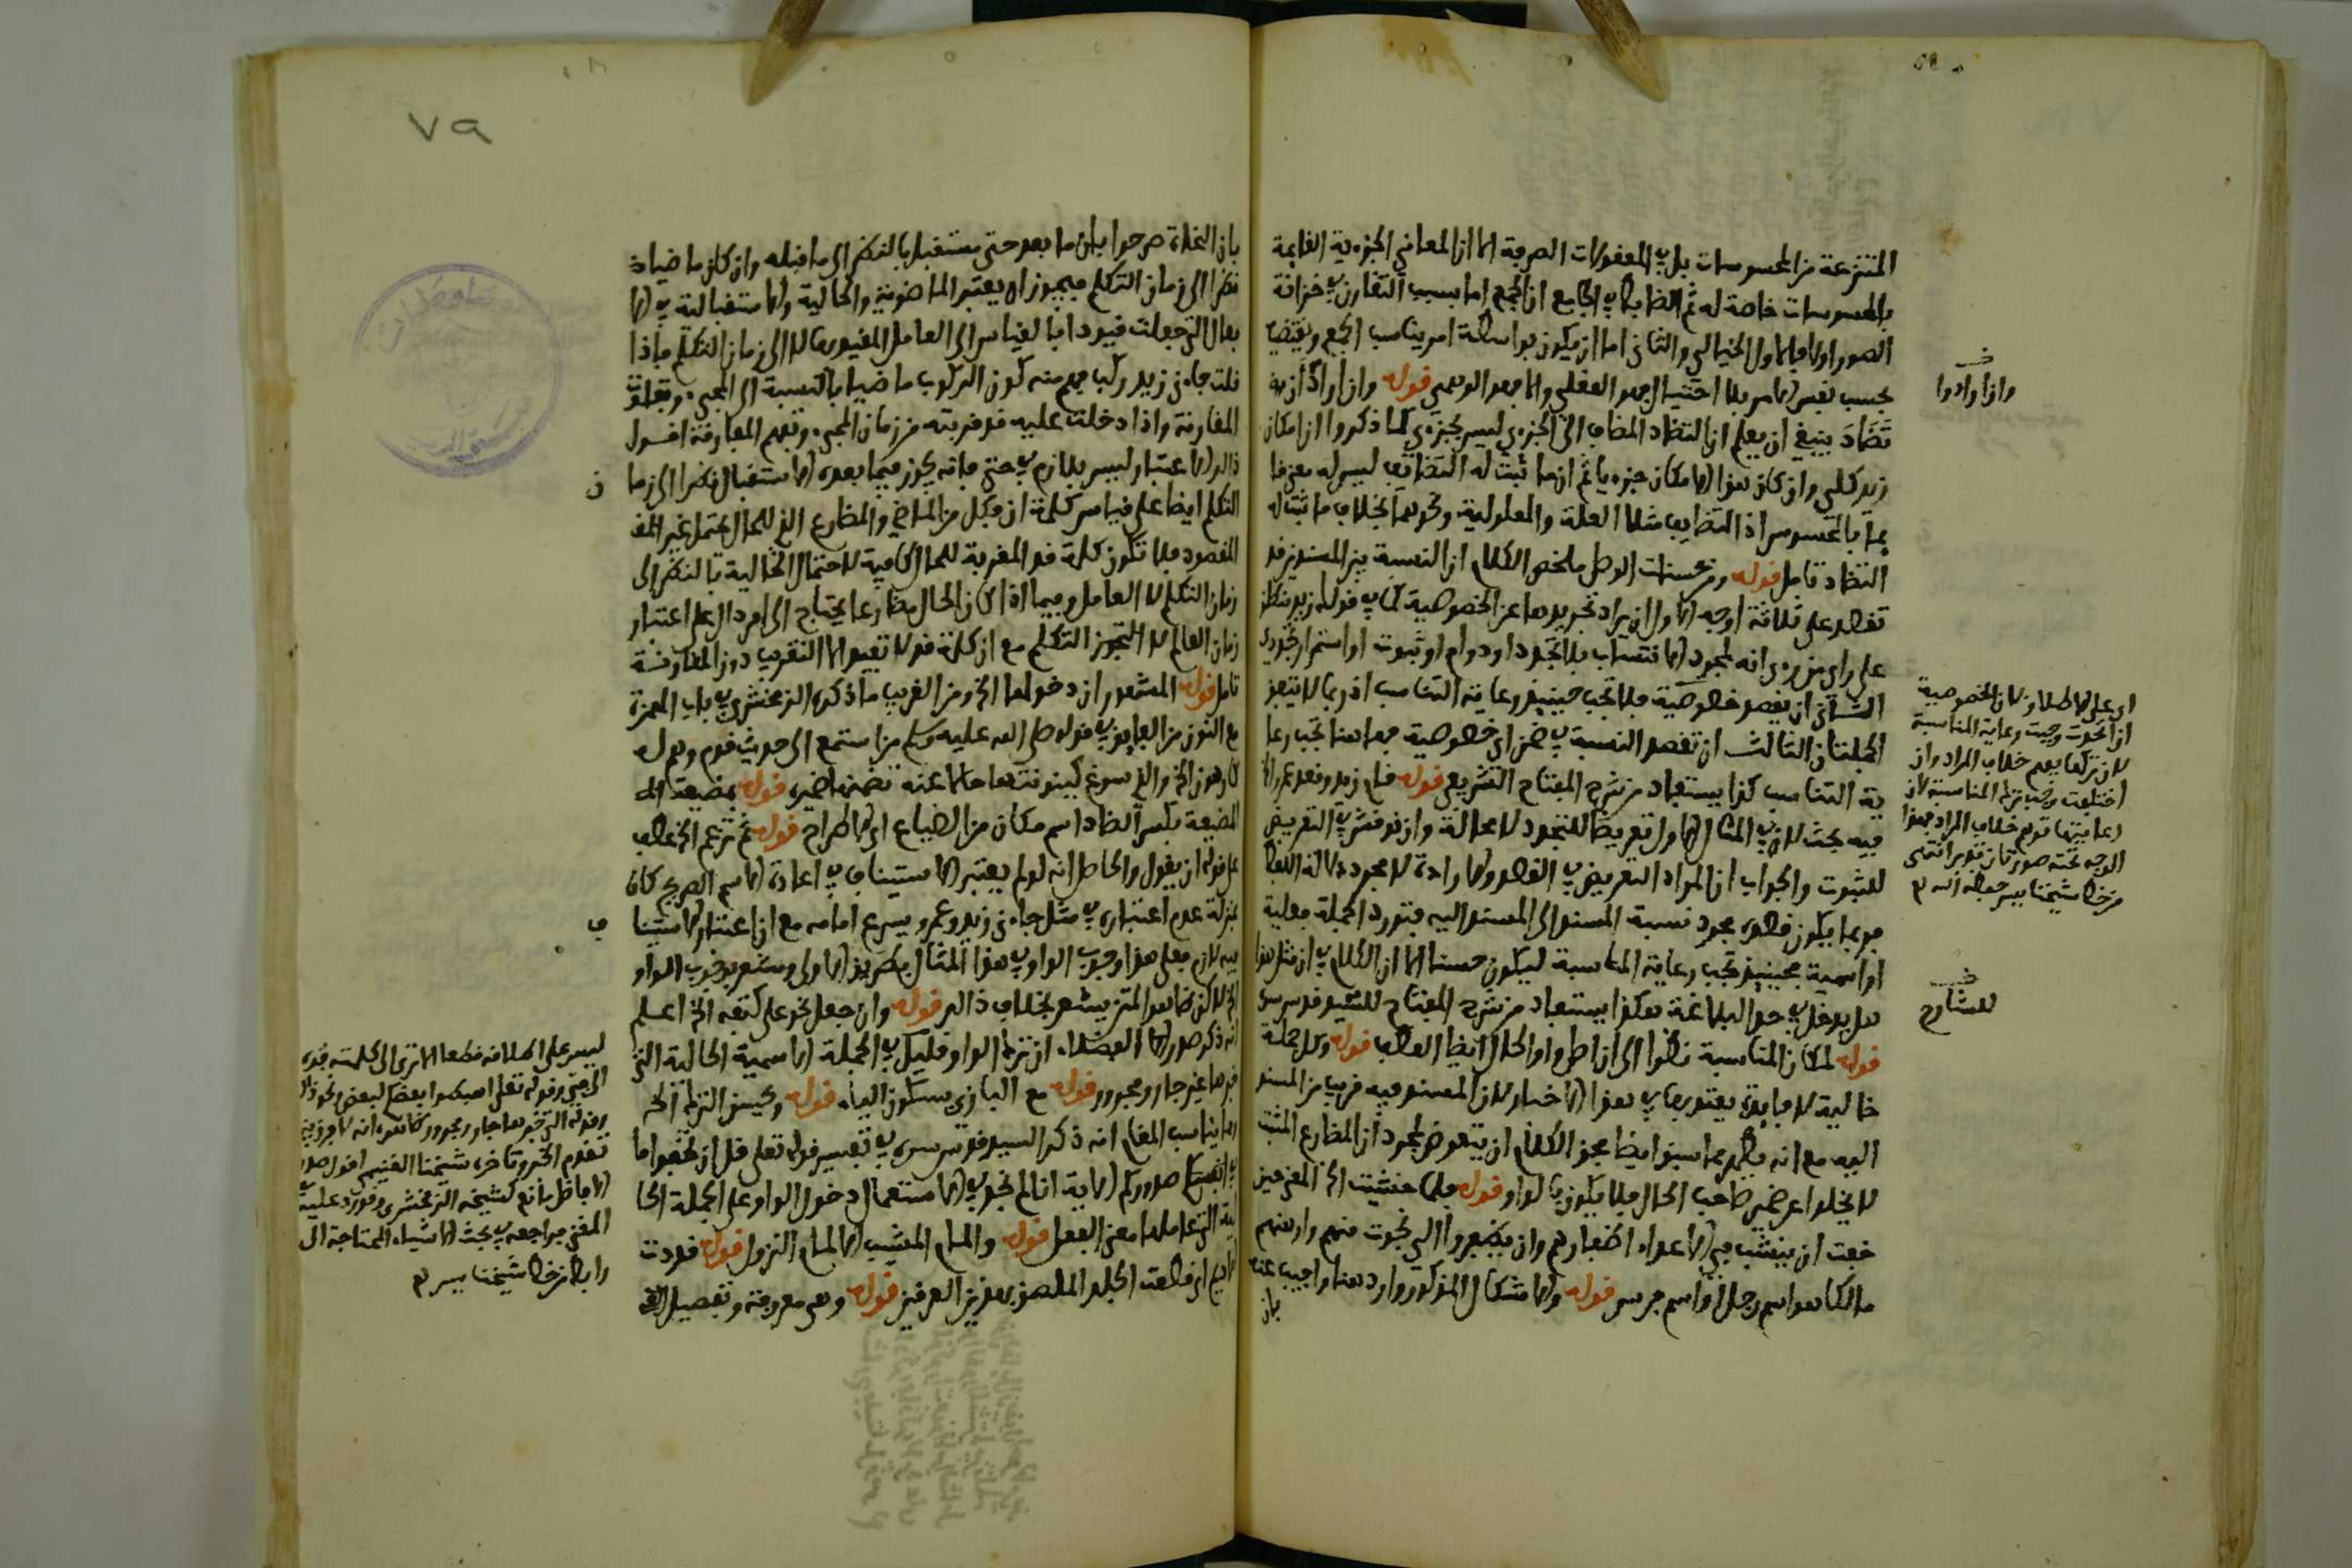 المنتزعة من المحسوسات بل في المعقولات الصرفة الا ان المعاني الجزءية القايمة
بالمحسوسات خاصة له ثم الضابط في الجامع ان الجمع اما بسبب التقارن في خزانة
الصور اولا فالاول الخيالي والثاني اما ان يكون بواسطة امر يناسب الجمع ويقتضيه
بحسب نفس الامر بلا احتيال فهو العقلي والا فهو الوهمي قوله وان ارادا ان
تضاد ينبغي ان يعلم ان التضاد المضاف الى الجزءي ليس بجزءي كما ذكروا ان امكان
زيد كلي وان كان هذا الامكان جزءيا ثم ان ما ثبت له التضايف ليس له معرفا
بما بالمحسوس اذ التضايف مثلا العلة والمعلولية ونحوهما بخلاف ما ثبت له
التضاد تامل قوله ومن محسنات الوصل ملخص الكلام ان النسبة بين المسندين قد
تقصد على ثلاثة اوجه الاول ان يراد تجريدها عن الخصوصية كما في قوله زيد منطلق
على راي من يرى انه لمجرد الانتساب بلا تجدد او دوام او ثبوت او استمرار تجددي
الثاني ان يقصد خصوصية فلا تجب حينيذ رعاية التناسب اذ ربما لا يتعين
الجملتان الثالث ان تقصد النسبة في ضمن اي خصوصية فهاهنا تجب رعا
ية التناسب كذا يستفاد من شرح المفتاح الشريفي قوله قام زيد وقعد عمرو الخ
فيه بحث لان في المثال الاول تعريضا للتجدد لا محالة وان نوقش في التعريض
للثبوت والجواب ان المراد التعريض في القصد والارادة لا مجرد دلالة اللفظ
فربما يكون قصده مجرد نسبة المسند الى المسند اليه فتورد الجملة فعلية
او اسمية فحينيذ تجب رعاية المناسبة ليكون حسنا الا ان الكلام في ان مثل هذا
هل يدخل في حد البلاغة هكذا يستفاد من شرح المفتاح للسيد قدس سره
قوله لمكان المناسبة نظرا الى ان اصل واو الحال ايضا العطف قوله وكل جملة
خالية لا فايدة يعتد بها في هذا الاخبار لان المسند فيه قريب من المسند
اليه مع انه يظهر مما سبق ايضا عجز الكلام ان يتعرض لمجرد ان المضارع المثبت
لا يخلوا عن ضمير صاحب الحال فلا يكون بالواو قوله فلما خشيت الخ المعنى حين
خفت ان ينشب في الاعداء اظفارهم وان يظفروا الي نجوت منهم وارهنهم
مالكا هو اسم رجل او اسم فرس قوله والاشكال المذكور وارد هنا واجيب عنه
بان
خـ
وان ارادوا
اي على الاطلاق لان الخصوصية
ان اتحدت وجبت رعاية المناسبة
لان تركها يوهم خلاف المراد وان
اختلفت وجب ترك المناسبة لان
رعايتها توهم خلاف المراد فهذا
الوجه تحته صورتان تدبر انتهى
من خط شيخنا يس حفظه الله م
خـ
للشارح
٧٩
بان النحاة صرحوا بان ما بعد حتى مستقبل بالنظر الى ما قبله وان كان ماضيا
نظرا الى زمان التكلم فيجوز ان يعتبر الماضوية والحالية والاستقبالية في الا
فعال التي جعلت قيودا بالقياس الى العامل المقيد بها لا الى زمان التكلم فاذا
قلت جاءني زيد ركب فهم منه كون الركوب ماضيا بالنسبة الى المجيء وتفوت
المقارنة واذا دخلت عليه قد قربته من زمان المجيء وتفهم المقارنة اقول
ذالك الاعتبار ليس بلازم في حتى فانه يجوز فيما بعده الاستقبال نظرا الى زما ن
التكلم ايضا على قياس كلمة ان فكل من الماضي والمضارع الذي للحال يحتمل غير المقـ
المقصود فلا تكون كلمة قد المقربة للحال كافية لاحتمال الحالية بالنظر الى
زمان التكلم لا العامل وفيما اذا كان الحال مضارعا يحتاج الى امر دال على اعتبار
زمان العامل لا التجوز التكلم مع ان كلمة قد لا تفيد الا التقريب دون المقارنة
تامل قوله المشهور ان دخولها الخ ومن الغريب ما ذكره الزمخشري في باب الهمزة
مع النون من الفايق في قوله صلى الله عليه وسلم من استمع الى حديث قوم وهم له
كارهون الخ والذي سوغ كينونتها حالا عنه تضمنه ضميره قوله بمضيعة الخ
المضيعة بكسر الضاد اسم مكان من الضياع اي الاطراح قوله ثم تزعم الخ عطف
على قوله ان يقول والحاصل انه لو لم يعتبر الاستيناف في اعادة الاسم الصريح كان
بمنزلة عدم اعتباره في مثل جاءني زيد وعمرو يسرع امامه مع ان اعتبار الاستينا ف
فيه لازم فعلى هذا وجوب الواو في هذا المثال بطريق الاولى ومشعر بوجوب الواو
الخ لاكن ظاهر المتن يشعر بخلاف ذالك قوله وان جعل نحو على كتفه الخ اعلم
انه ذكر صدر الافاضل ان ترك الواو قليل في الجملة الاسمية الحالية التي
خبرها غير جار ومجرور قوله مع البازي بسكون الياء قوله ويحسن الترك الخ
مما يناسب المقام انه ذكر السيد قدس سره في تفسير قوله تعلى قل ان تخفوا ما
في صدوركم الاية انا لم نجد في الاستعمال دخول الواو على الجملة الحا
لية التي عاملها معنى الفعل قوله والمام المشيب الالمام النزول قوله قددت
الاديم اي قطعت الجلد الملصق بهذين العرفين قوله وهي معروفة وتفصيل
ليس على اطلاقه قطعا الا ترى الى كلمته فوه
الى في وقوله تعلى اهبطوا بعضكم لبعض عدو ذا
وقوله التي خبرها جار ومجرور ظاهره انه لا فرق بين
تقدم الخبر وتاخره شيخنا الغنيمي اقول صدر
الافاضل تابع لشيخه الزمخشري وقد رد عليه
المغني فراجعه في بحث الاشياء المحتاجة الى
رابط من خط شيخنا يس م